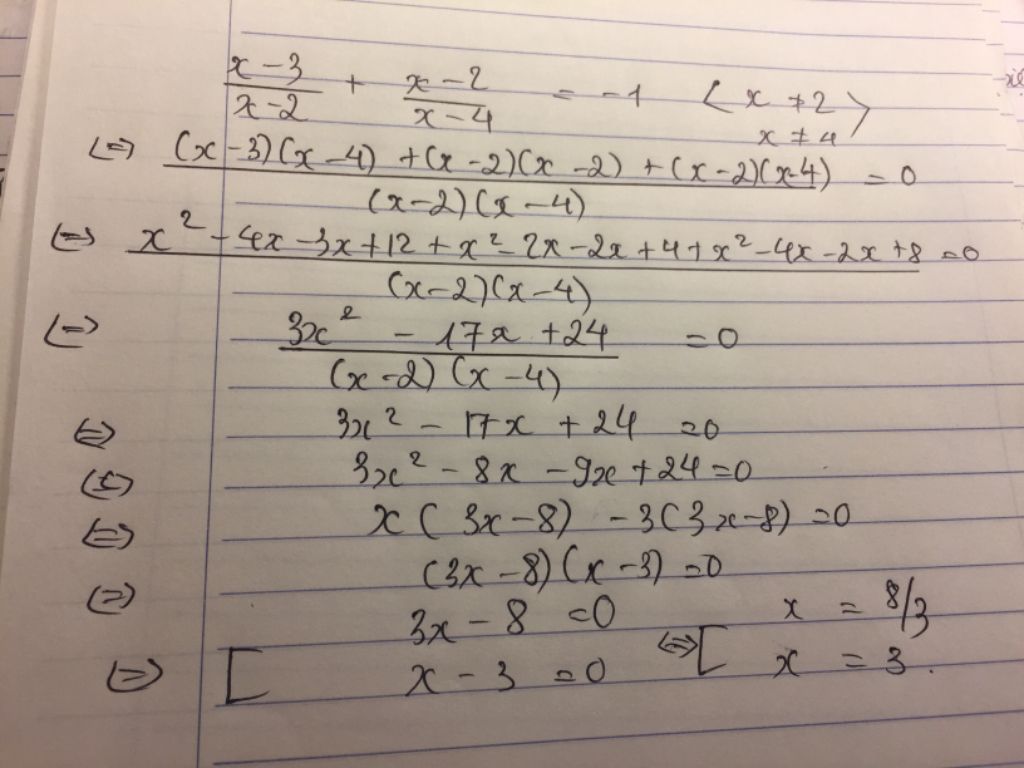 (x-3)/(x-2) + (x-2)/(x-4) = -1 < x ≠ 2 x ≠ 4 >
<=> ((x-3)(x-4) + (x-2)(x-2) + (x-2)(x-4))/((x-2)(x-4)) = 0
<=> (x² - 4x - 3x + 12 + x² - 2x - 2x + 4 + x² - 4x - 2x + 8)/((x-2)(x-4)) = 0
<=> (3x² - 17x + 24)/((x-2)(x-4)) = 0
<=> 3x² - 17x + 24 = 0
<=> 3x² - 8x - 9x + 24 = 0
<=> x(3x-8) - 3(3x-8) = 0
<=> (3x-8)(x-3) = 0
3x - 8 = 0 x = 8/3
<=> [ x - 3 = 0 <=> [ x = 3.